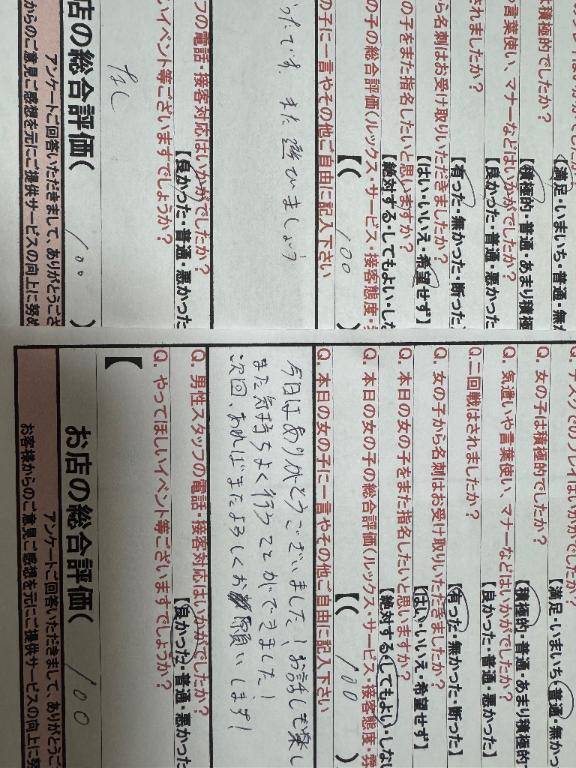 満足・いまいち・普通・無か
は積極的でしたか？
【積極的・普通・あまり積極
や言葉使い、マナーなどはいかがでしたか？
【良かった・普通・悪かった
されましたか？
【有った・無かった・断った
ら名刺はお受け取りいただきましたか？
【はい・いいえ・希望せず】
の子をまた指名したいと思いますか？
【絶対する・してもよい・しな
の子の総合評価(ルックス・サービス・接客態度・
【( 100
の子に一言やその他ご自由に記入下さい
ったです。また遊びましょう
フの電話・接客対応はいかがでしたか？
【良かった・普通・悪かった
いイベント等ございますでしょうか？
なし
店の総合評価( 100 )
アンケートご回答いただきまして、ありがとうござ
からのご意見ご感想を元にご提供サービスの向上に努め
【満足・いまいち・普通・無かっ
Q. 女の子は積極的でしたか？
【積極的・普通・あまり積極的
Q. 気遣いや言葉使い、マナーなどはいかがでしたか？
【良かった・普通・悪かった】
Q. 二回戦はされましたか？
【有った・無かった・断った】
Q. 女の子から名刺はお受け取りいただきましたか？
【はい・いいえ・希望せず】
Q. 本日の女の子をまた指名したいと思いますか？
【絶対する・してもよい・しない
Q. 本日の女の子の総合評価(ルックス・サービス・接客態度・雰
【( 100 )
Q. 本日の女の子に一言やその他ご自由に記入下さい
今日はありがとうございました！お話しも楽し
また気持ちよく行うことができました！
次回、あればまたよろしくお願いします！
Q. 男性スタッフの電話・接客対応はいかがでしたか？
【良かった・普通・悪かった
Q. やってほしいイベント等ございますでしょうか？
【
お店の総合評価( 100
アンケートご回答いただきまして、ありがとうご
お客様からのご意見ご感想を元にご提供サービスの向